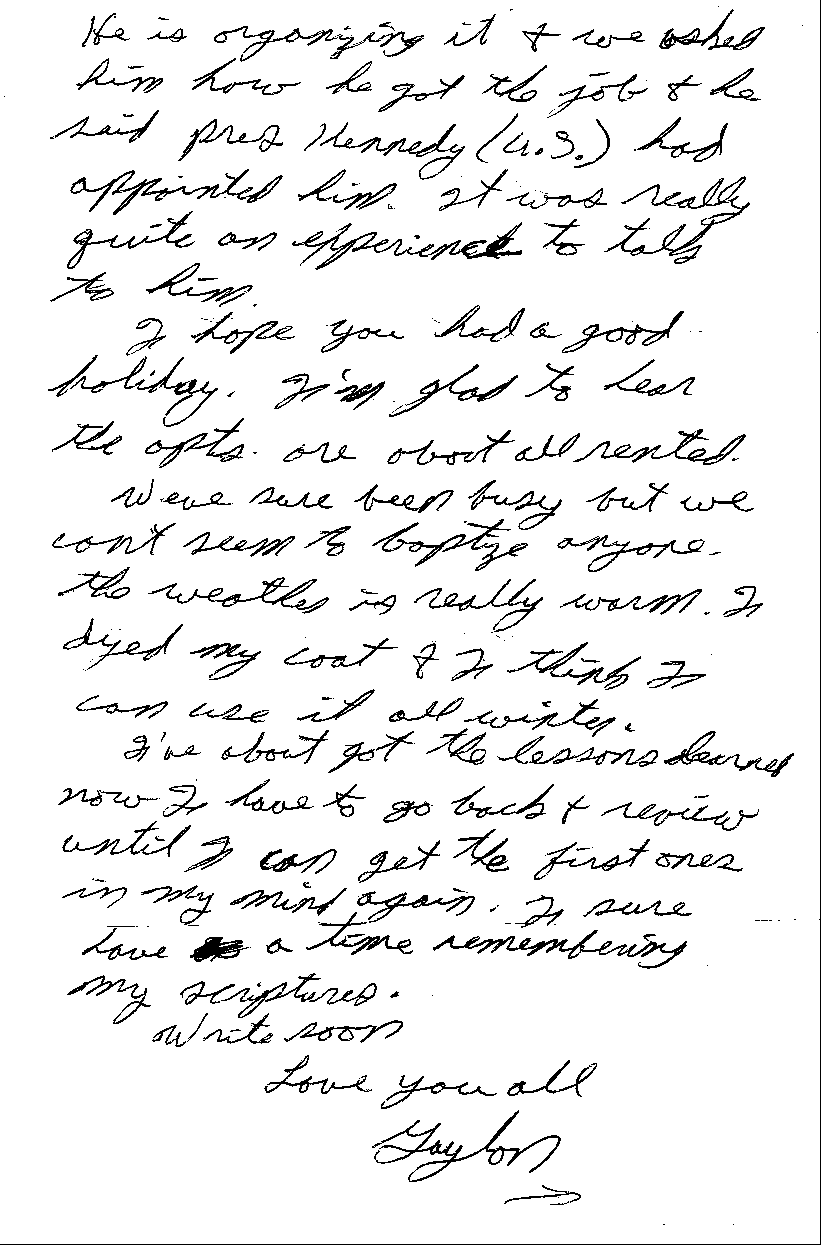 He is organizing it & we asked
him how he got the job & he
said pres Kennedy (U.S.) had
appointed him. It was really
quite an experience to talk
to him.
I hope you had a good
holiday. I'm glad to hear
the apts. are about all rented.
Weve sure been busy but we
can't seem to baptize anyone.
the weather is really warm. I
dyed my coat & I think I
can use it all winter.
I've about got the lessons learned
now I have to go back & review
until I can get the first ones
in my mind again. I sure
have a time remembering
my scriptures.
Write soon
Love you all
Gaylon
→